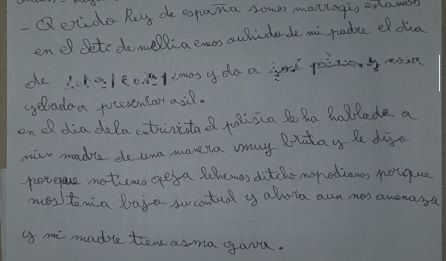 - Querido Rey de españa somos marroqis estamos
en el Seti de mellia emos suhido de mi padre el dia
de emos y do a
yebado a presentar asil.
en el dia dela entrivista el polisia le ha hablado a
mien madre de una manera muy bruta y le dijo
porque no tienes qeja lehemos ditcho nopodiamos porque
mos tenia bajo su control y ahora aun nos amenaza
y mi madre tiene asma gava.